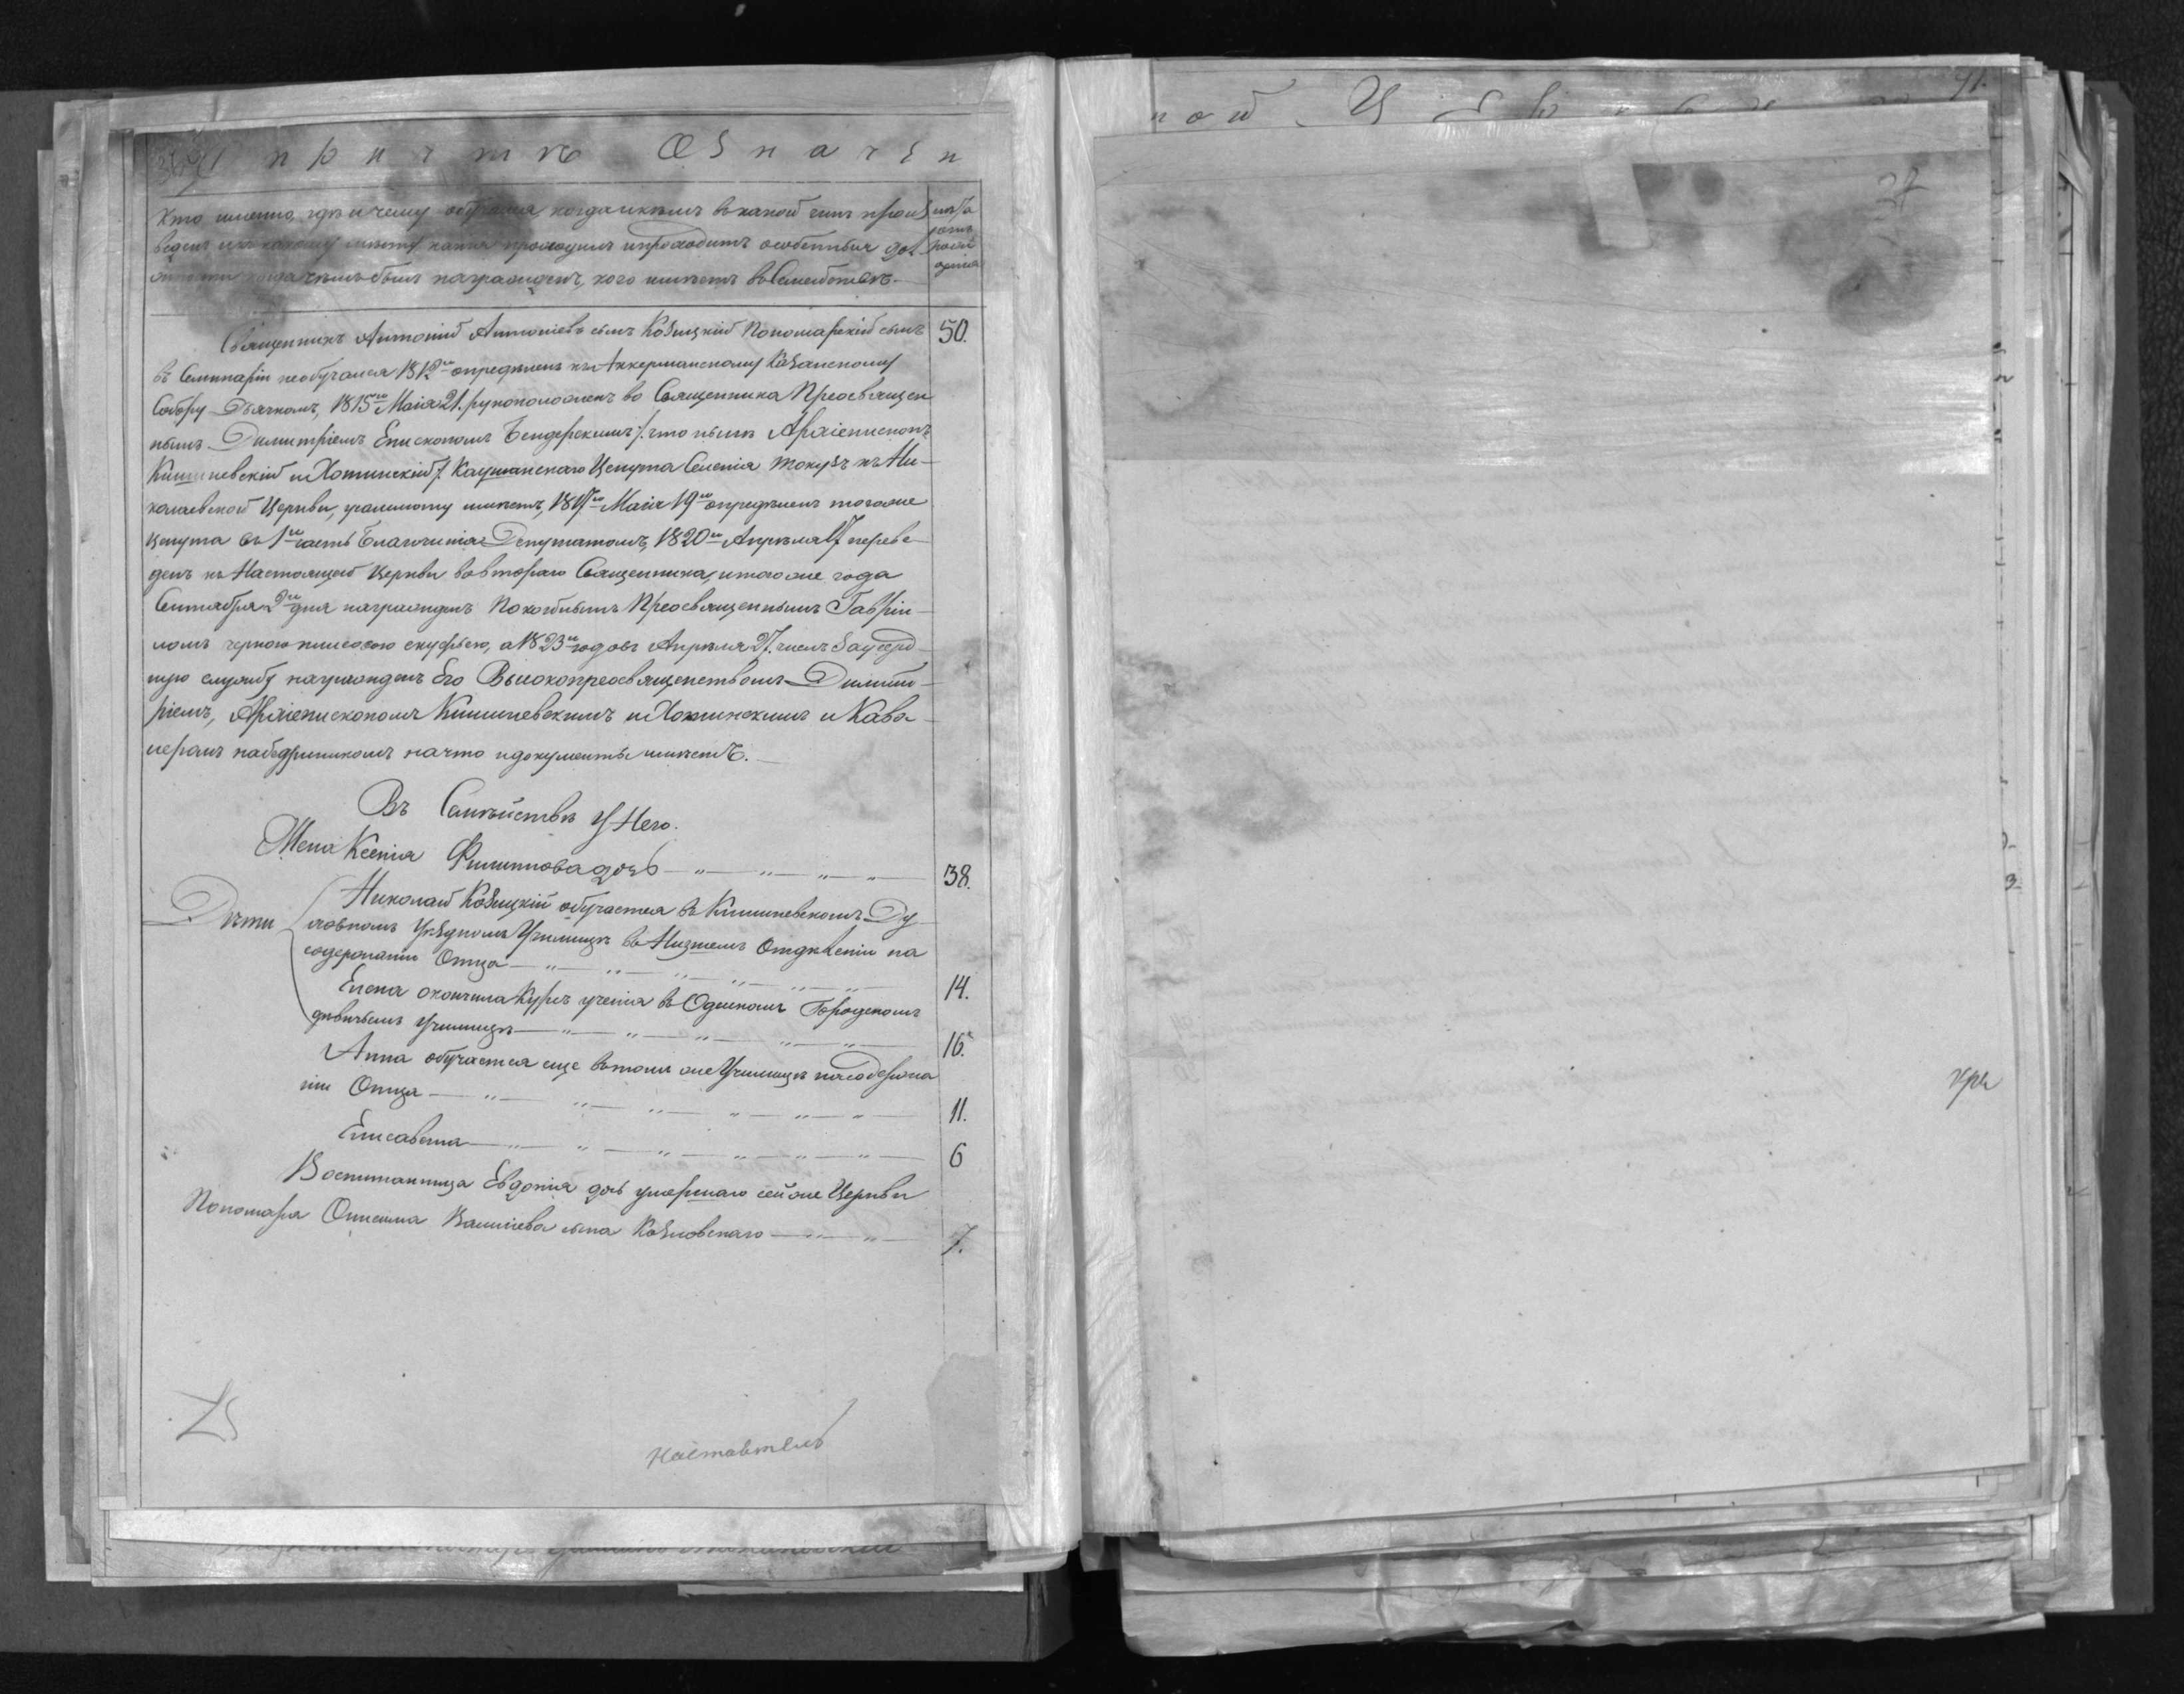 О причтѣ Означен
Кто именно, гдѣ и чему обучался, когда и кѣмъ въ какой чинъ произ
веденъ и къ какому мѣсту, какія проходилъ и проходитъ особенныя дол
когда чѣмъ былъ награжденъ, кого имѣетъ въ Семействѣ.
Священникъ Антоній Антоніевъ сынъ Козицкій Пономарскій сынъ 50.
въ Семинаріи необучался 1812го опредѣленъ къ Аккерманскому Казанскому
Собору Дьячкомъ, 1815го Маія 21. рукоположенъ во Священника Преосвящен
нымъ Димитріемъ Епископомъ Бендерскимъ /: что нынѣ Архіепископъ
Кишиневскій и Хотинскій :/ Каушанскаго Цынута Селенія Токузъ къ Ни-
колаевской Церкви, грамоту имѣетъ, 1817го Маія 19го опредѣленъ тогоже
Цынута въ 1ю часть Благочинія Депутатомъ, 1820го Апрѣля 17 переве-
денъ къ Настоящей Церкви вовтораго Священника, и того же года
Сентября 2го дня награжденъ Покойнымъ Преосвященнымъ Гавріи-
ломъ черною плисовою скуфьею, а 1823го годовъ Апрѣля 27. числъ заусерд-
ную службу награжденъ Его Высокопреосвященствомъ Димит-
ріемъ, Архіепископомъ Кишиневскимъ и Хотинскимъ и Кава-
леромъ набедренникомъ начто и документы имѣетъ.
Въ Семѣйствѣ У Него.
Жена Ксенія Филиппова дочь 38.
Дѣти Николай Козицкій обучается въ Кишиневскомъ Ду
ховномъ Уѣздномъ Училищѣ въ Низшемъ Отдѣленіи на
содержаніи Отца 14.
Елена окончила Курсъ ученія въ Одесскомъ Городскомъ
дѣвичьемъ Училищѣ 16.
Анна обучается еще въ томъ же Училищѣ на содержа
ніи Отца 11.
Елисавета 6
Воспитанница Евдокія дочь умершаго сей же Церкви
Пономаря Онисима Василіева сына Козловскаго 7.
наставтель
27
41.